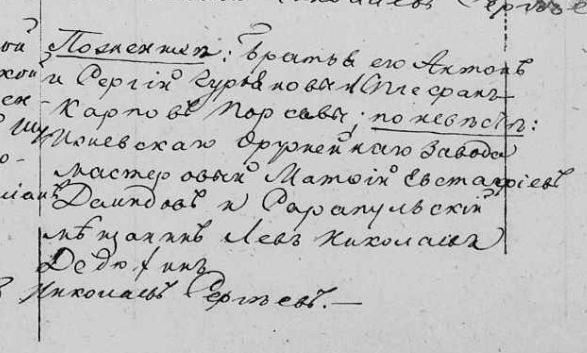 По женихѣ: братья его Антонъ
и Сергій Гурьяновы и Стефанъ
Карповъ Порсевы; по невѣстѣ:
Ижевскаго Оружейнаго Завода
мастеровый Матѳій Евстафіевъ
Демидовъ и Сарапульскій
мѣщанинъ Левъ Николаевъ
Дедюхинъ
Николаевъ Сергѣевъ.—